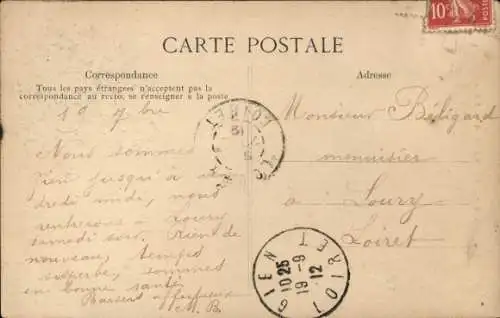 10c
POSTES
CARTE POSTALE
Correspondance
Tous les pays étrangers n'acceptent pas la
correspondance au recto, se renseigner à la poste
Adresse
19 7bre
Nous sommes
Gien jusqu'à
dredi midi, nous
rentrerons à Loury
samedi soir. Rien de
nouveau, temps
superbe, sommes
en bonne santé
Baisers affectueux
M. B.
Monsieur Béligard
menuisier
à Loury
Loiret
LOIRET
GIEN
LOIRET
10 25
19 - 9
12